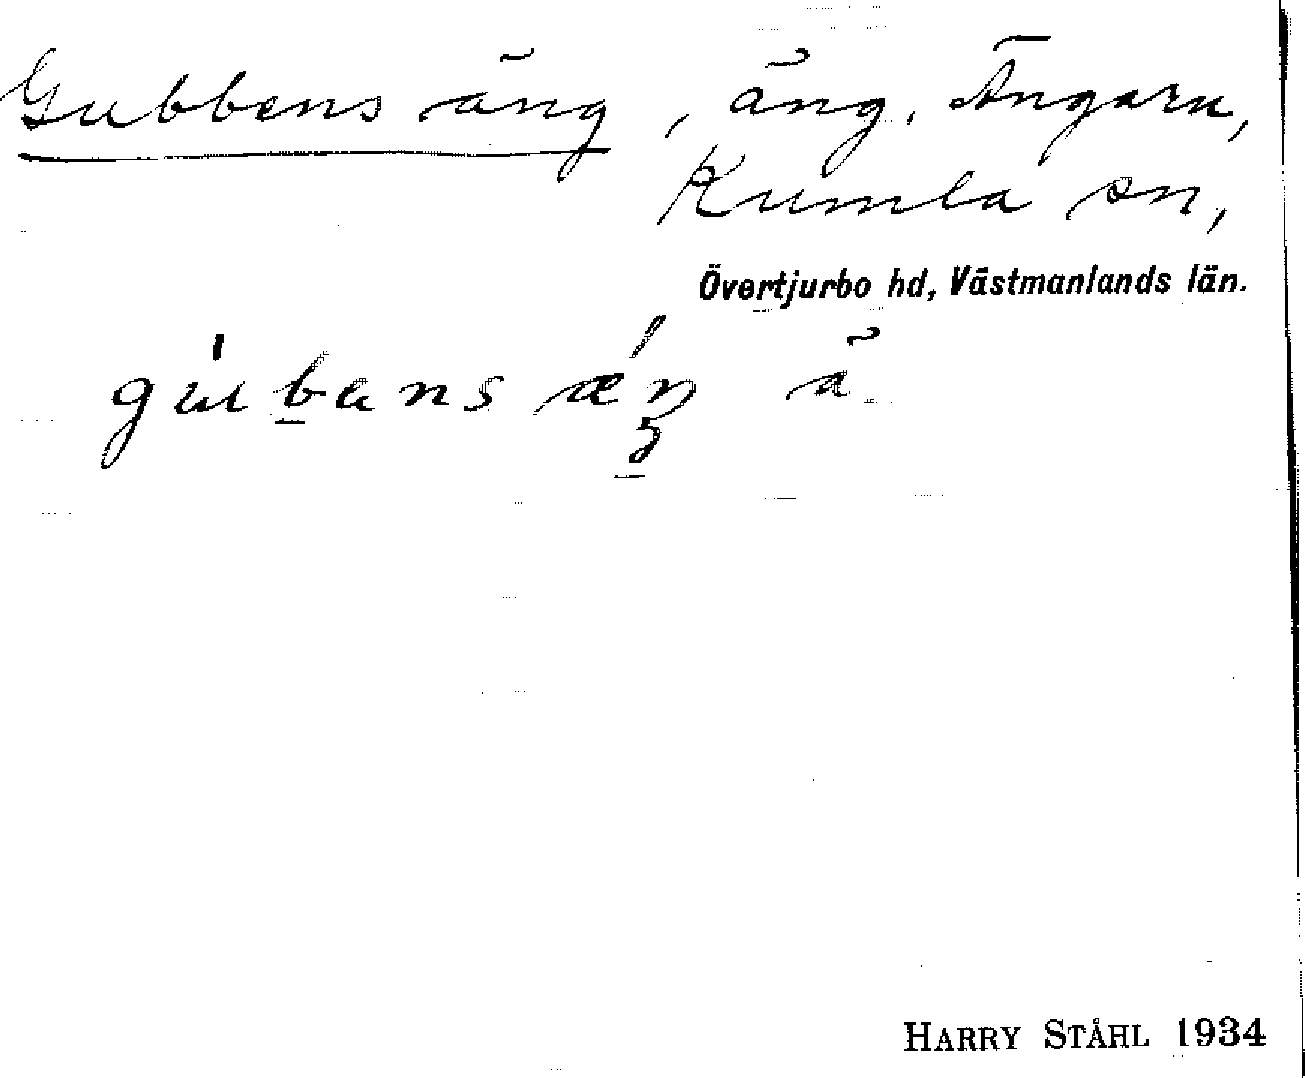 Gubbens äng, äng, Ängarn,
Kumla sn,
Övertjurbo hd, Västmanlands län.
ä
HARRY STÅHL 1934